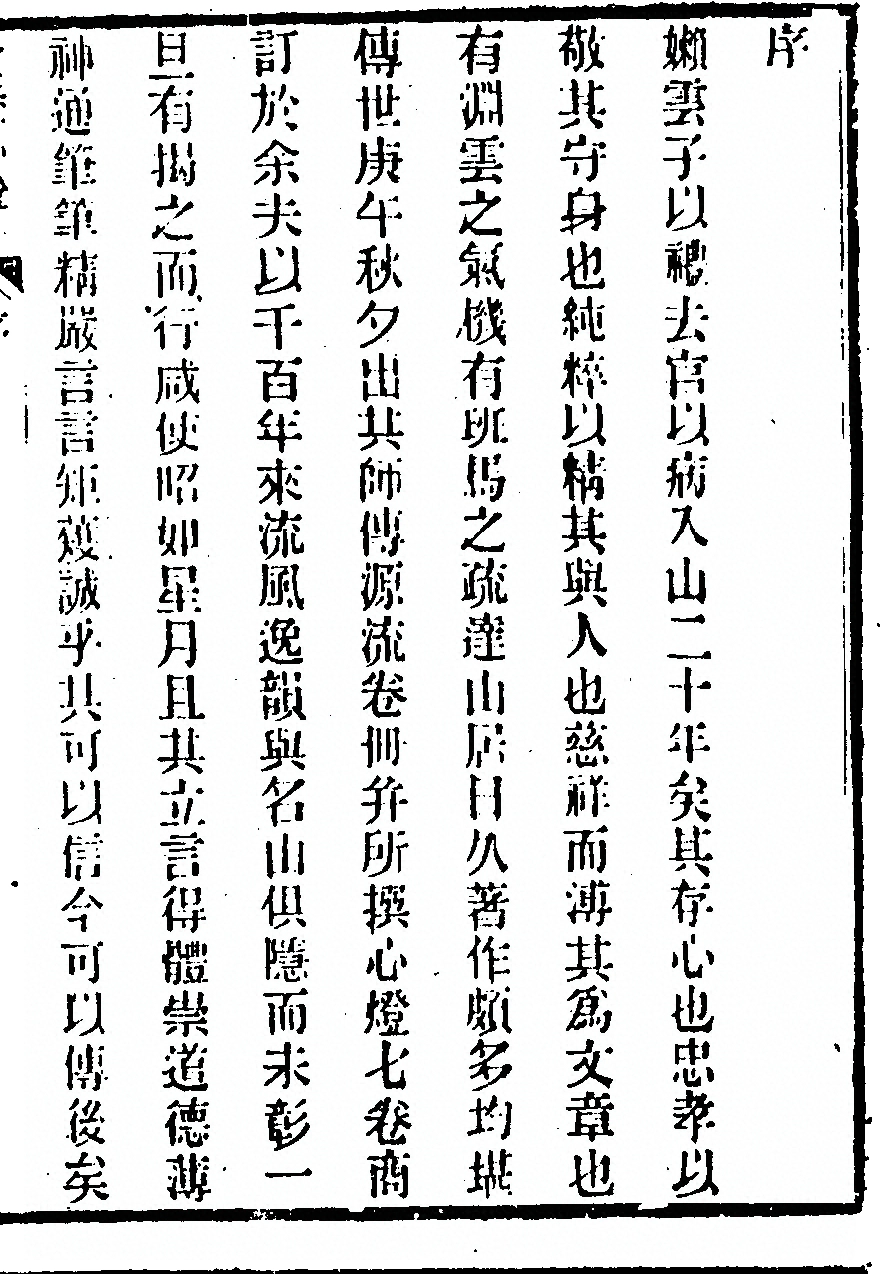 序
嬾雲子以禮去官以病入山二十年矣其存心也忠孝以
敬其守身也純粹以精其與人也慈祥而溥其爲文章也
有淵雲之氣機有班馬之疏達山居日久著作頗多均堪
傳世庚午秋夕出其師傳源流卷冊幷所撰心燈七卷商
訂於余夫以千百年來流風逸韻與名山俱隱而未彰一
旦有揭之而行咸使昭如星月且其立言得體崇道德薄
神通筆筆精嚴言言矩蒦誠乎其可以信今可以傳後矣